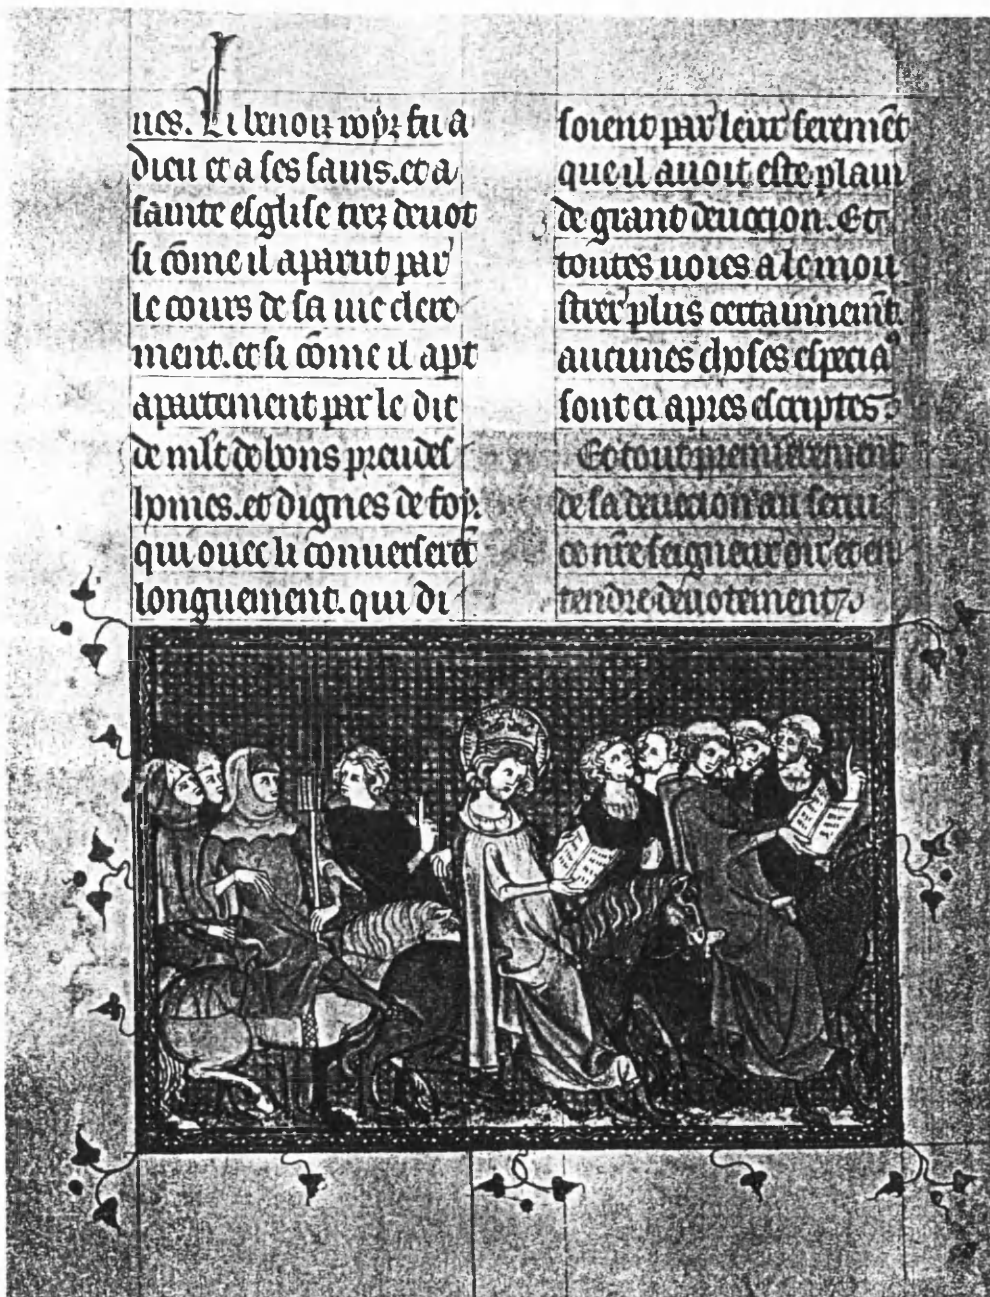 nes. Li benoiz roys fu a
dieu et a ses sains. et a
sainte esglise trez deuot
si cōme il aparut par
le cours de sa uie clere
ment. et si cōme il apt
apartement par le dit
de mlt de bons preudes
homes. et dignes de foy.
qui ouec li conuerserēt
longuement. qui di
soient par leur seremēt
que il auoit este plain
de grant deuocion. Et
toutes uoies a le mou
strer plus certainnemēt
aucunes choses especia
sont ci apres escriptes
Et tout premierement
de sa deuocion au serui
ce nr̄e seigneur oir et en
tendre deuotement